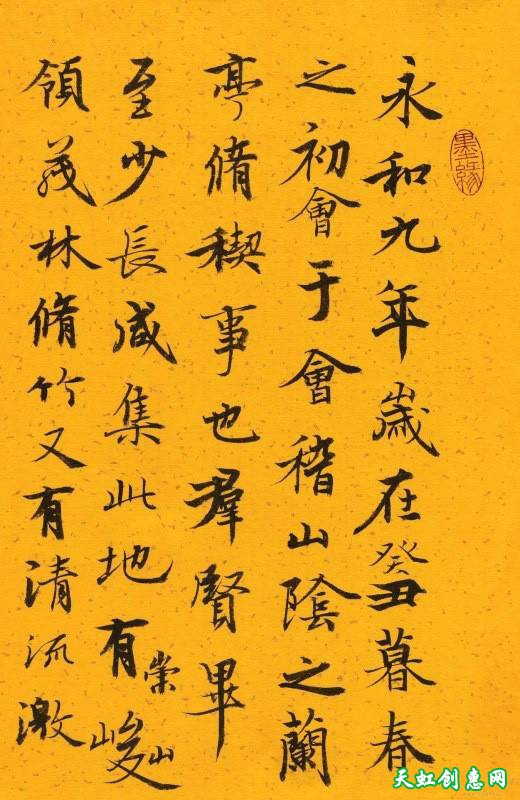 永和九年歲在癸丑暮春
之初會于會稽山陰之蘭
亭脩稧事也羣賢畢
至少長咸集此地有崇山峻
領茂林脩竹又有清流激
天虹创惠网